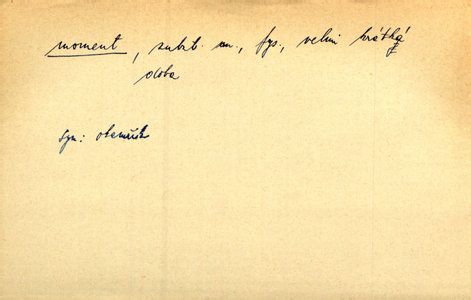 moment, subst. m., fys., velmi krátká
doba
syn: okamžik